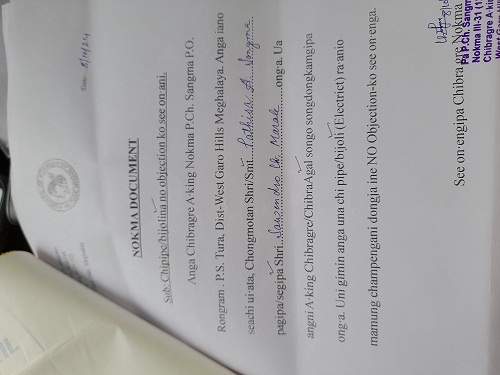 8/11/24
NOKMA DOCUMENT
Sub: Chipipe/bijolina no objection ko see on·ani.
Anga Chibragre A·king Nokma P.Ch. Sangma P.O.
Rongram . P.S. Tura, Dist-West Garo Hills Meghalaya. Anga iano
seachi ui·ata, Chongmotan Shri/Smi. A. Sangma
pagipa/segipa Shri Ch. Marak ong·a. Ua
angni A·king Chibragre/ChibraAgal songo songdongkamgipa
ong·a. Uni gimin anga una chi pipe/bijoli (Electrict) ra·anio
mamung champengani dongja ine NO Objection-ko see on·enga.
See on·engipa Chibragre Nokma
Pa P.Ch. Sangm
Nokma III-31 (1
Chibragre A·king